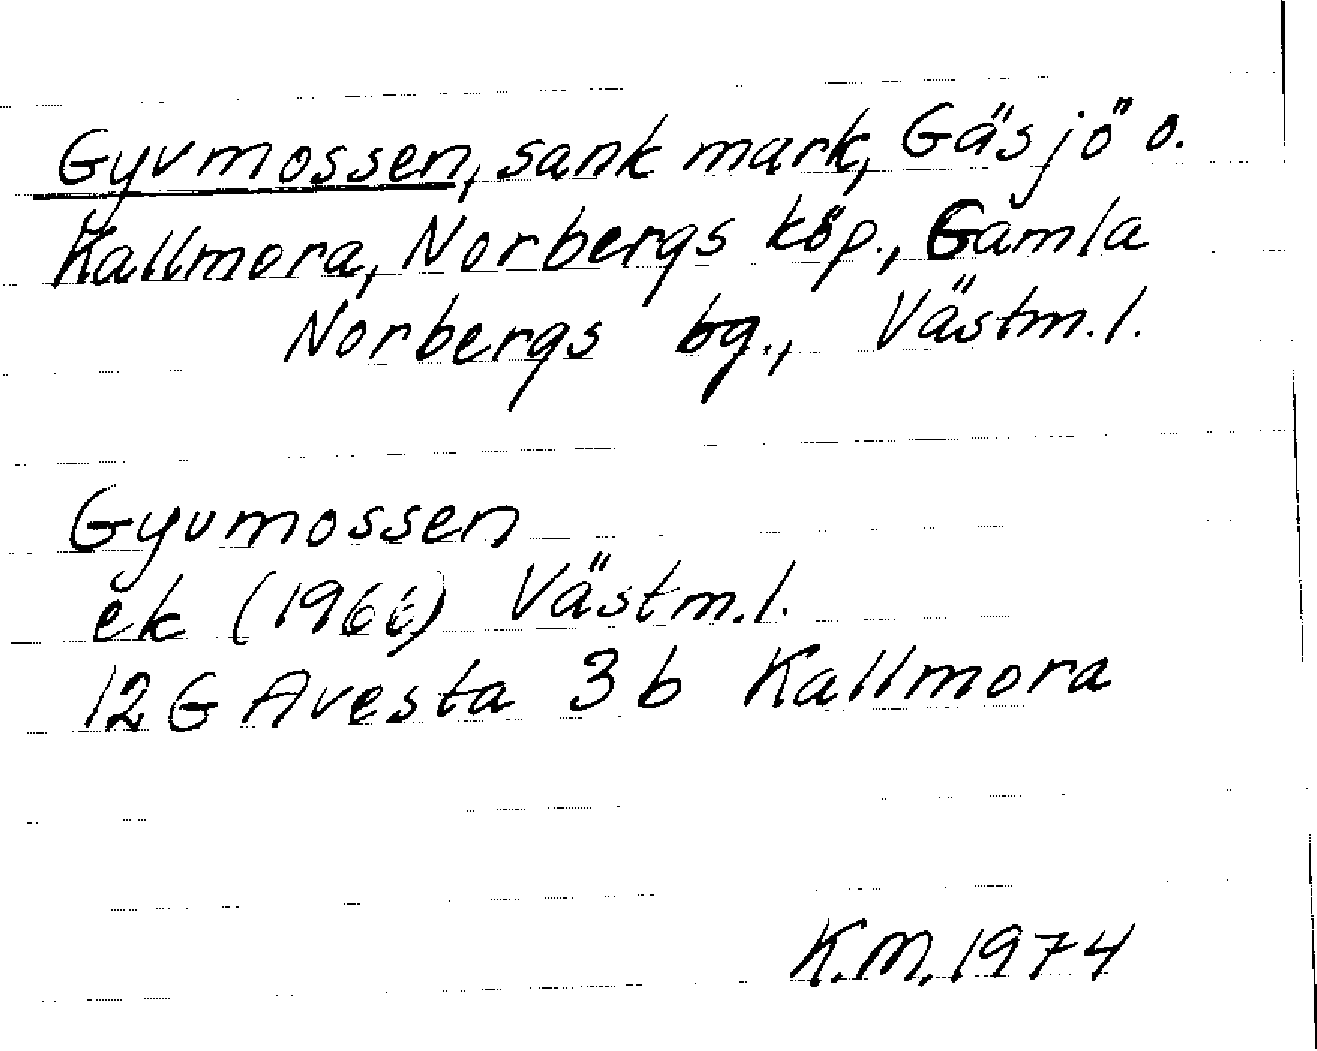 Gyvmossen, sank mark, Gäsjö o.
Kallmora, Norbergs köp., Gamla
Norbergs bg., Västm.l.
Gyvmossen
ek (1966) Västm.l.
12G Avesta 3b Kallmora
K.M. 1974